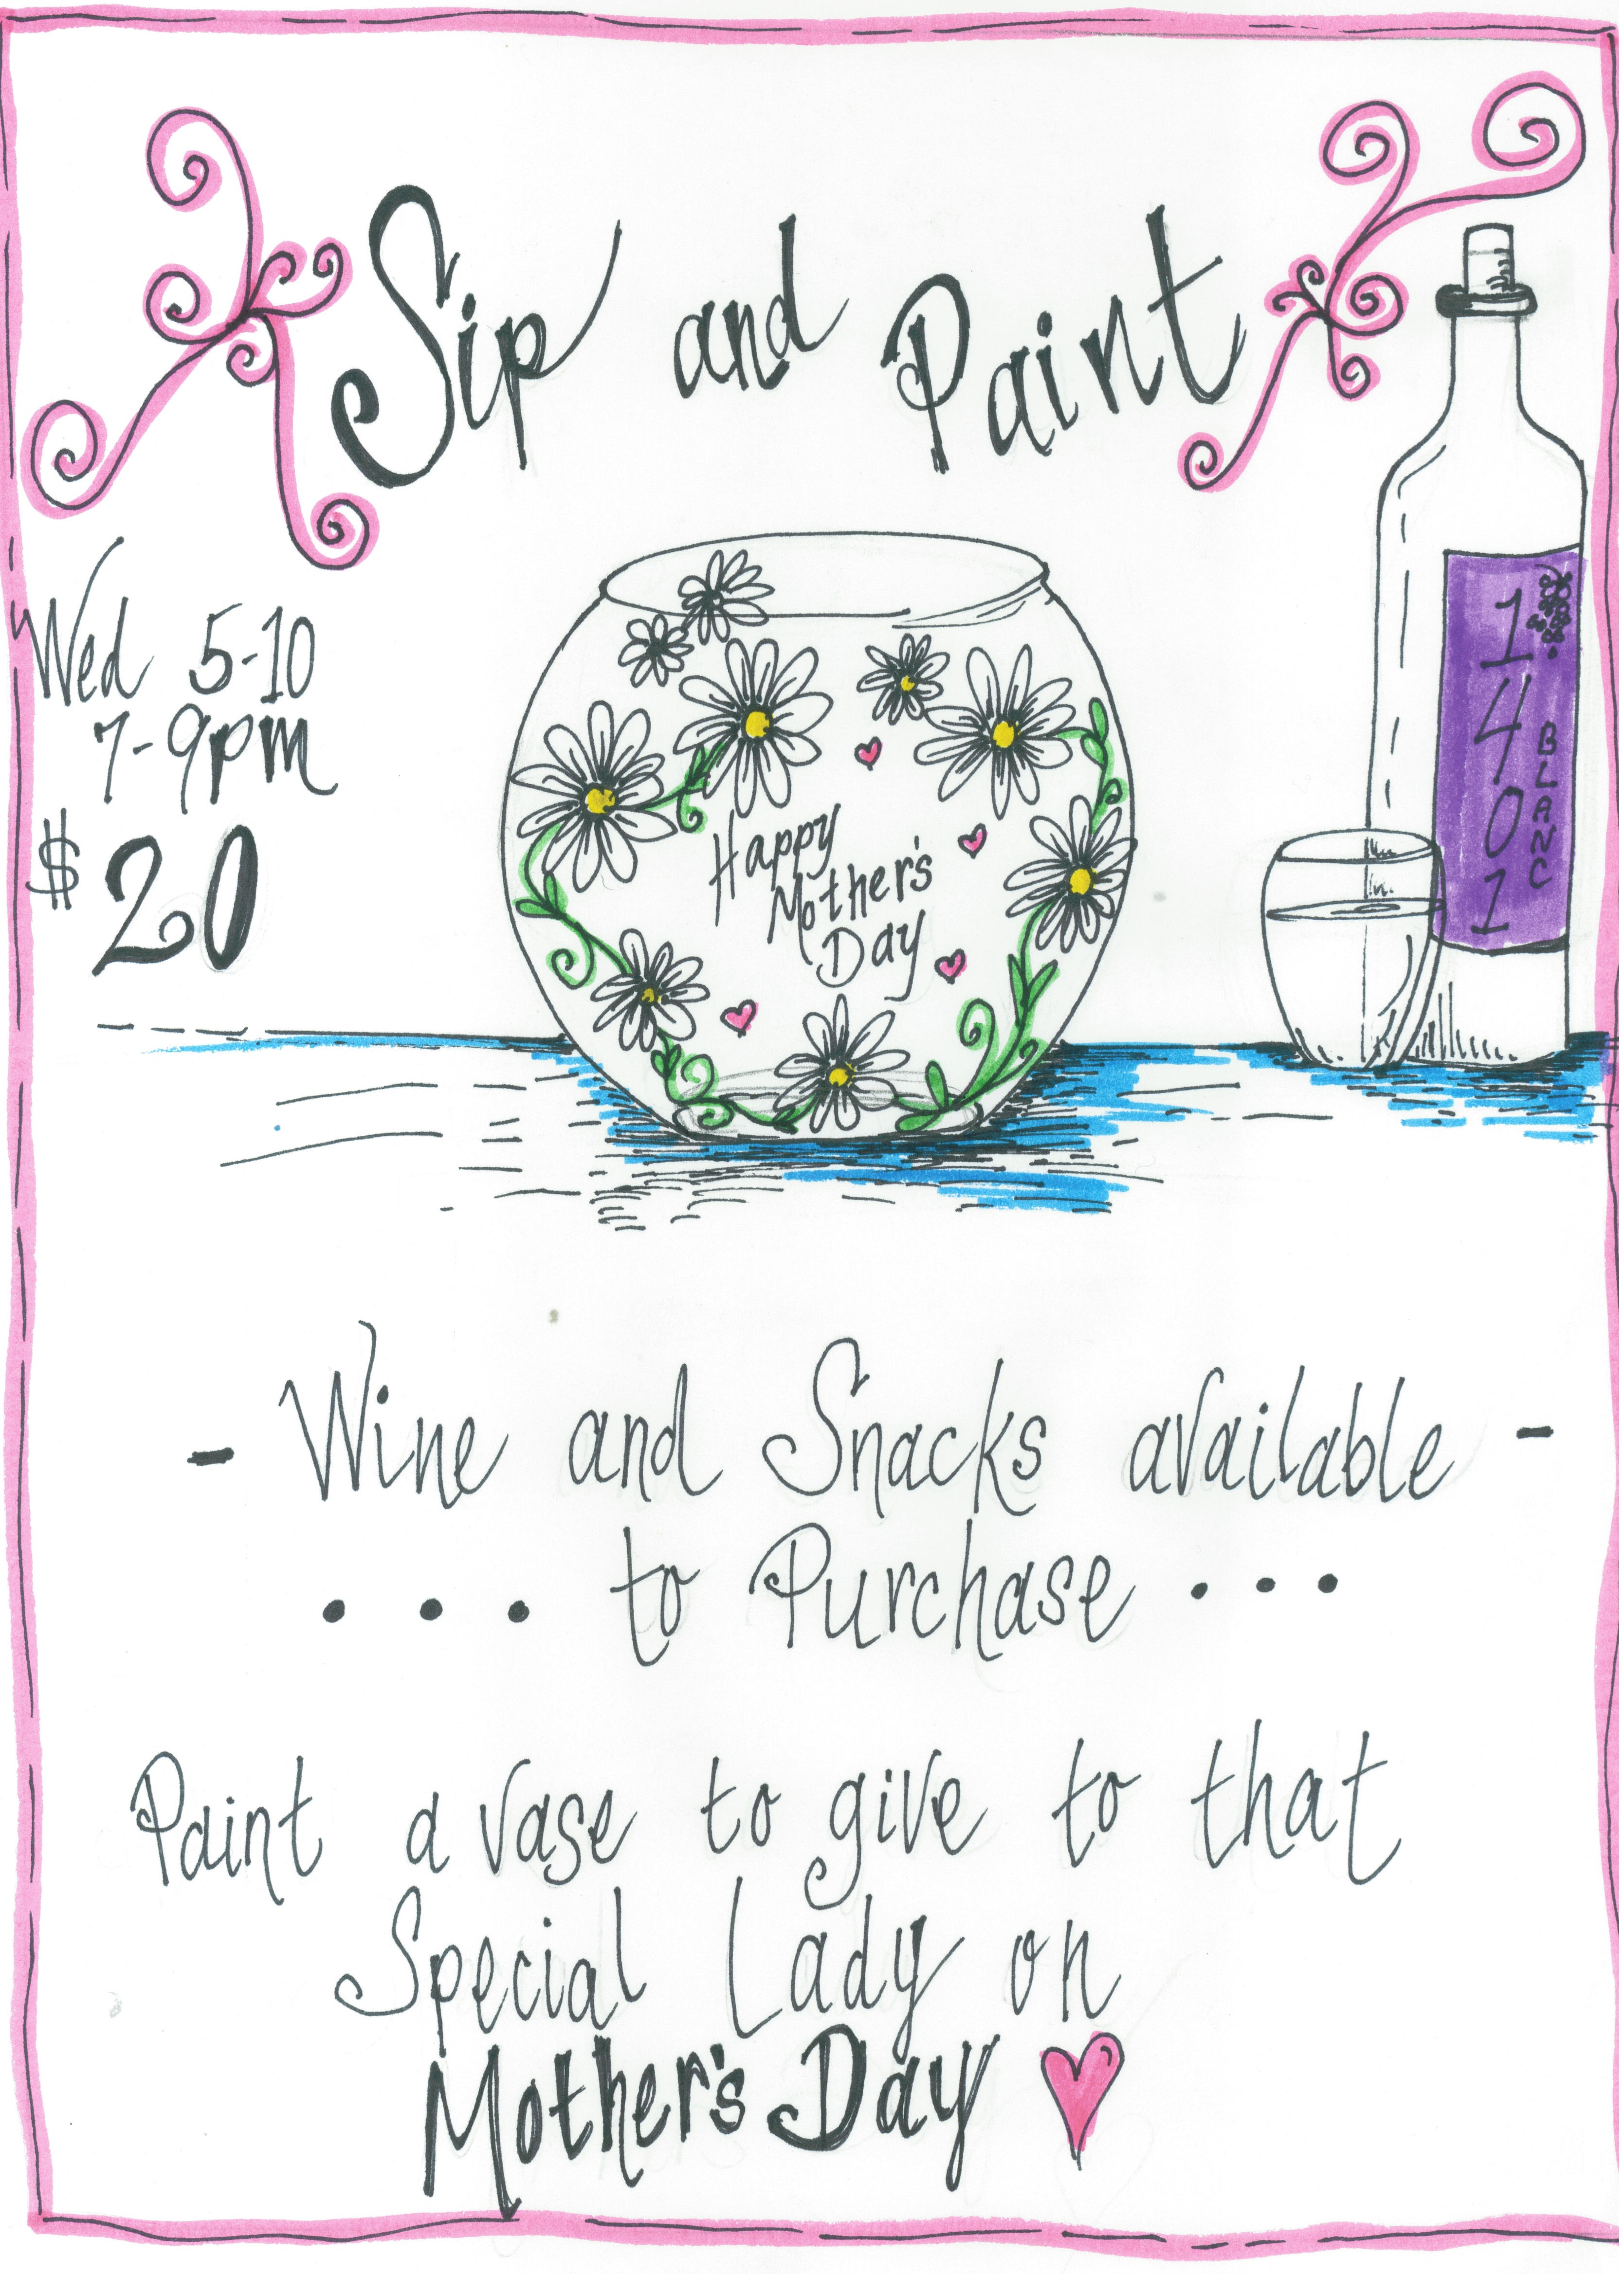 Sip and Paint
Wed 5-10
7-9pm
$20
Happy
Mother's
Day
1401
BLANC
- Wine and Snacks available -
... to Purchase ...
Paint a vase to give to that
Special Lady on
Mother's Day